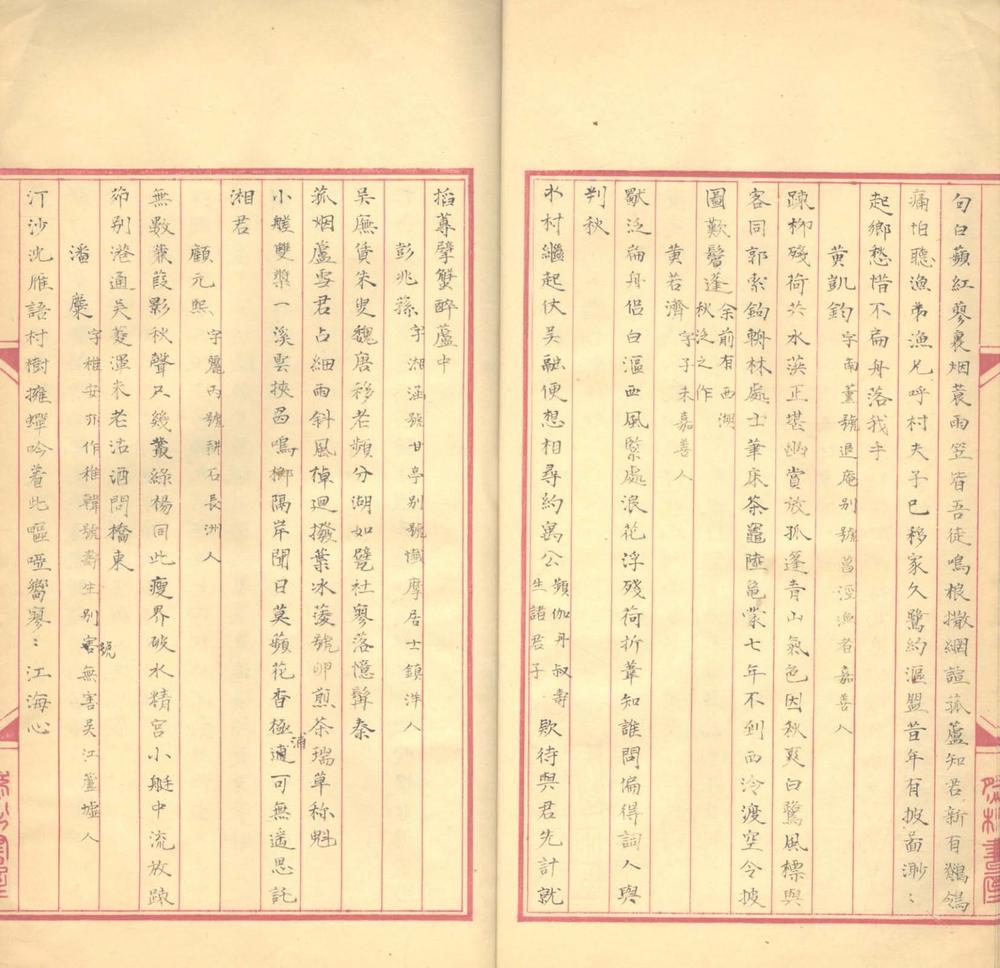 句白蘋紅蓼裏烟蓑雨笠皆吾徒鳴榔撒網諠菰蘆知君新有鷦鴒
痛怕聽漁弟漁兄呼村夫子已移家久鷺約漚盟昔年有披畐渺〻
起鄉愁惜不扁舟落我手
黄凱鈞 字南薰號退庵别號菖涇漁者嘉善人
疎柳殘荷共水滨正堪幽賞放孤蓬青山氣色因秋爽白鷺風標與
客同郭索鉤輈林處士筆床茶竈陸龜蒙七年不到西泠渡空令披
圖歎鬢蓬 余前有西湖秋泛之作
黄若濟 字子未嘉善人
歇泛扁舟侣白漚西風緊處浪花浮殘荷折葦知誰問偏得詞人與
判秋
水村繼起仗吴融便想相尋約寓公 頻伽丹叔壽生諸君子 欵待與君先計就
搯蓴擘蟹醉蘆中
彭兆蓀 字湘涵號甘亭别號懺摩居士鎮洋人
吴廡賃朱叟魏唐移老蘋分湖如甓社寥落憶髯秦
菰烟蘆雪君占細雨斜風棹迴撥葉冰蔆號卵煎茶瑞草称魁
小艖雙槳一溪雲挾咼鳴榔隔岸聞日莫蘋花香極浦遠可無遥思託
湘君
顧元熙 字麗丙號耕石長洲人
無數蒹葭影秋聲只幾叢綠楊同此瘦界破水精宫小艇中流放疎
笻别港通吴菱運米老沽酒問橋東
潘麋 字稚安亦作稚韓號壽生别號無害吴江蘆墟人
汀沙沈雁語村樹擁蟬吟着此嘔啞嚮寥〻江海心